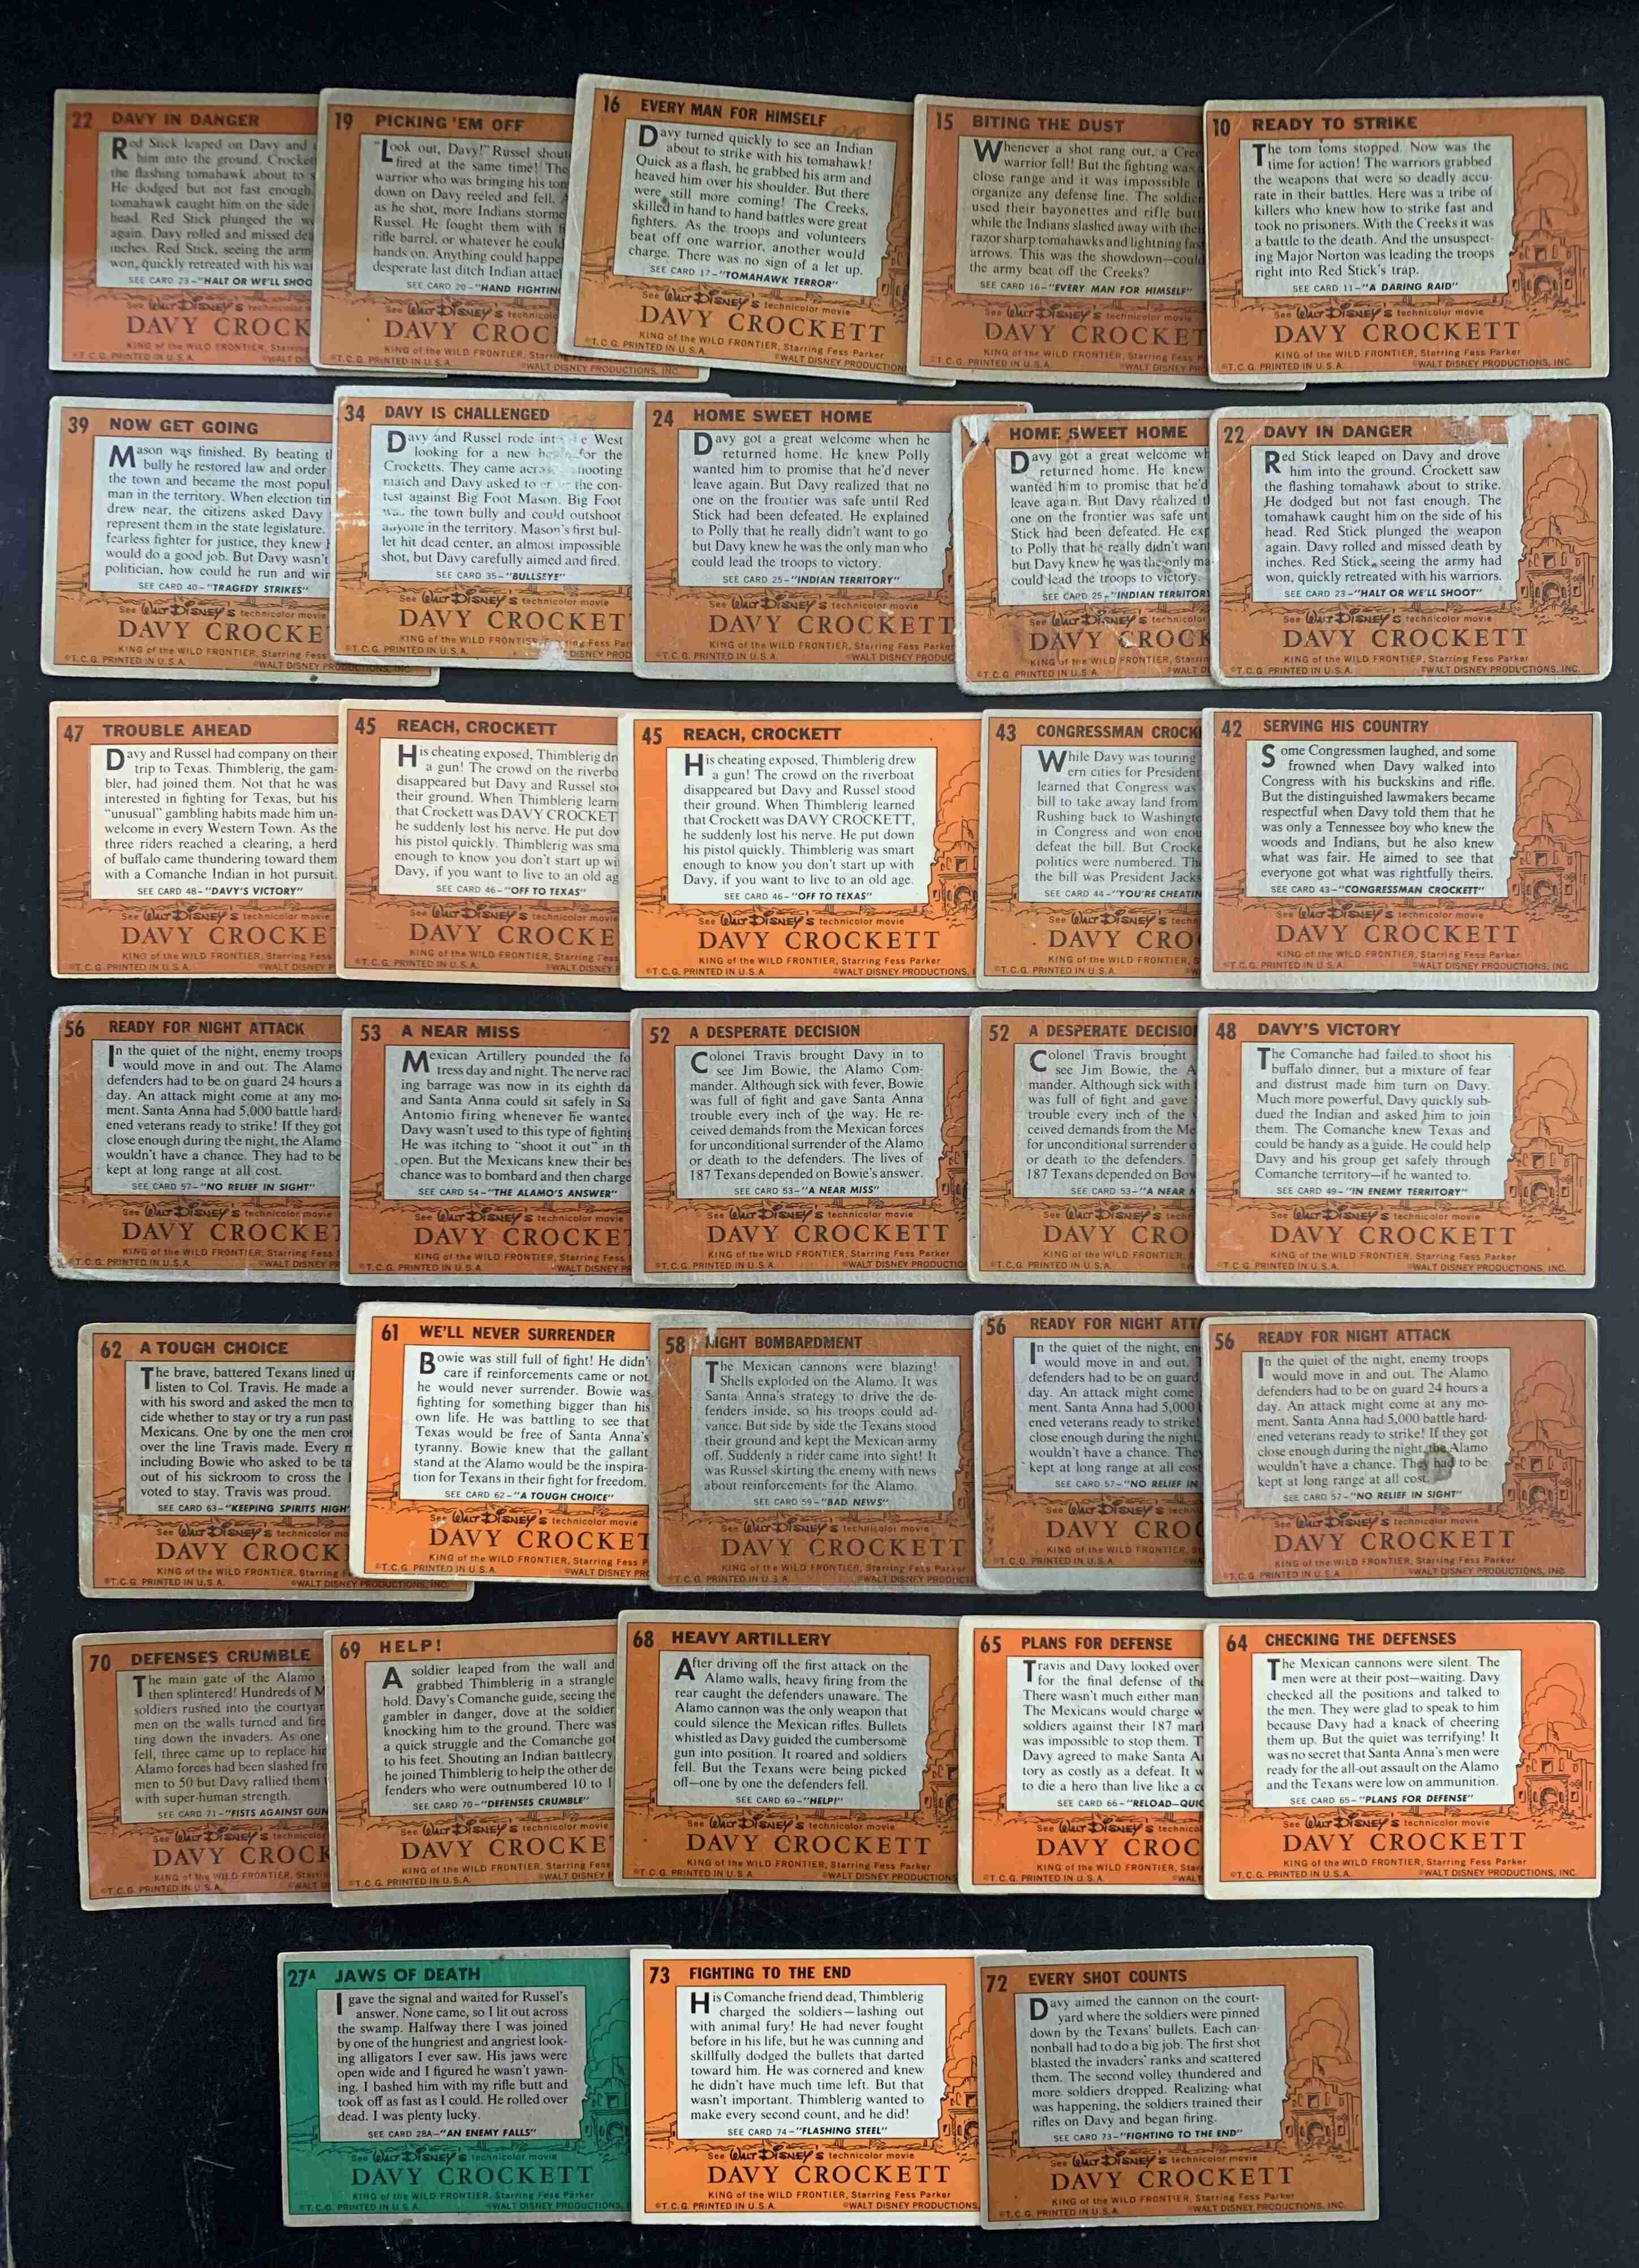 22 DAVY IN DANGER
Red Stick leaped on Davy and
him into the ground. Crocket
the flashing tomahawk about to s
He dodged but not fast enough
tomahawk caught him on the side
head. Red Stick plunged the w
again. Davy rolled and missed dea
inches. Red Stick, seeing the arm
won, quickly retreated with his wa
SEE CARD 23-"HALT OR WE'LL SHOO
See WALT DISNEY'S technicolor
DAVY CROCK
KING of the WILD FRONTIER, Starring
©T.C.G. PRINTED IN U.S.A. ©WALT DIS
19 PICKING 'EM OFF
"Look out, Davy!" Russel shout
fired at the same time! The
warrior who was bringing his tom
down on Davy reeled and fell. A
as he shot, more Indians storme
Russel. He fought them with fi
rifle barrel, or whatever he could
hands on. Anything could happe
desperate last ditch Indian attac
SEE CARD 20-"HAND FIGHTIN
See WALT DISNEY'S technicolo
DAVY CROC
KING of the WILD FRONTIER, Starring
©T.C.G. PRINTED IN U.S.A. ©WALT DISNEY PRODUCTIONS, INC.
16 EVERY MAN FOR HIMSELF
Davy turned quickly to see an Indian
about to strike with his tomahawk!
Quick as a flash, he grabbed his arm and
heaved him over his shoulder. But there
were still more coming! The Creeks,
skilled in hand to hand battles were great
fighters. As the troops and volunteers
beat off one warrior, another would
charge. There was no sign of a let up.
SEE CARD 17-"TOMAHAWK TERROR"
See WALT DISNEY'S technicolor movie
DAVY CROCKETT
KING of the WILD FRONTIER, Starring Fess Parker
©T.C.G. PRINTED IN U.S.A. ©WALT DISNEY PRODUCTION
15 BITING THE DUST
Whenever a shot rang out, a Cree
warrior fell! But the fighting was a
close range and it was impossible t
organize any defense line. The soldier
used their bayonettes and rifle butt
while the Indians slashed away with thei
razor sharp tomahawks and lightning fas
arrows. This was the showdown—could
the army beat off the Creeks?
SEE CARD 16-"EVERY MAN FOR HIMSELF"
See WALT DISNEY'S technicolor movie
DAVY CROCKET
KING of the WILD FRONTIER, Starring Fess P
©T.C.G. PRINTED IN U.S.A. ©WALT DISNEY PR
10 READY TO STRIKE
The tom toms stopped. Now was the
time for action! The warriors grabbed
the weapons that were so deadly accu-
rate in their battles. Here was a tribe of
killers who knew how to strike fast and
took no prisoners. With the Creeks it was
a battle to the death. And the unsuspect-
ing Major Norton was leading the troops
right into Red Stick's trap.
SEE CARD 11-"A DARING RAID"
See WALT DISNEY'S technicolor movie
DAVY CROCKETT
KING of the WILD FRONTIER, Starring Fess Parker
©T.C.G. PRINTED IN U.S.A. ©WALT DISNEY PRODUCTIONS, INC.
39 NOW GET GOING
Mason was finished. By beating th
bully he restored law and order
the town and became the most popul
man in the territory. When election tim
drew near, the citizens asked Davy
represent them in the state legislature.
fearless fighter for justice, they knew h
would do a good job. But Davy wasn't
politician, how could he run and win
SEE CARD 40-"TRAGEDY STRIKES"
See WALT DISNEY'S technicolor movie
DAVY CROCKE
KING of the WILD FRONTIER, Starring Fess
©T.C.G. PRINTED IN U.S.A. ©WALT DISNEY PRODUCTIONS, INC.
34 DAVY IS CHALLENGED
Davy and Russel rode int e West
looking for a new for the
Crocketts. They came acr hooting
match and Davy asked to the con-
test against Big Foot Mason. Big Foot
was the town bully and could outshoot
anyone in the territory. Mason's first bul-
let hit dead center, an almost impossible
shot, but Davy carefully aimed and fired.
SEE CARD 35-"BULLSEYE"
See WALT DISNEY'S technicolor movie
DAVY CROCKET
KING of the WILD FRONTIER, Starring Fess Par
©T.C.G. PRINTED IN U.S.A. DISNEY PROD
24 HOME SWEET HOME
Davy got a great welcome when he
returned home. He knew Polly
wanted him to promise that he'd never
leave again. But Davy realized that no
one on the frontier was safe until Red
Stick had been defeated. He explained
to Polly that he really didn't want to go
but Davy knew he was the only man who
could lead the troops to victory.
SEE CARD 25-"INDIAN TERRITORY"
See WALT DISNEY'S technicolor movie
DAVY CROCKETT
KING of the WILD FRONTIER, Starring Fess Parke
©T.C.G. PRINTED IN U.S.A. ©WALT DISNEY PRODUC
4 HOME SWEET HOME
Davy got a great welcome wh
returned home. He knew
wanted him to promise that he'd
leave again. But Davy realized th
one on the frontier was safe unt
Stick had been defeated. He exp
to Polly that he really didn't want
but Davy knew he was the only ma
could lead the troops to victory.
SEE CARD 25-"INDIAN TERRITOR
See WALT DISNEY'S technicolor
DAVY CROCK
KING of the WILD FRONTIER, Starrin
©T.C.G. PRINTED IN U.S.A. ©WALT D
22 DAVY IN DANGER
Red Stick leaped on Davy and drove
him into the ground. Crockett saw
the flashing tomahawk about to strike.
He dodged but not fast enough. The
tomahawk caught him on the side of his
head. Red Stick plunged the weapon
again. Davy rolled and missed death by
inches. Red Stick, seeing the army had
won, quickly retreated with his warriors.
SEE CARD 23-"HALT OR WE'LL SHOOT"
See WALT DISNEY'S technicolor movie
DAVY CROCKETT
KING of the WILD FRONTIER, Starring Fess Parker
©T.C.G. PRINTED IN U.S.A. ©WALT DISNEY PRODUCTIONS, INC.
47 TROUBLE AHEAD
Davy and Russel had company on their
trip to Texas. Thimblerig, the gam-
bler, had joined them. Not that he was
interested in fighting for Texas, but his
"unusual" gambling habits made him un-
welcome in every Western Town. As the
three riders reached a clearing, a herd
of buffalo came thundering toward them
with a Comanche Indian in hot pursuit.
SEE CARD 48-"DAVY'S VICTORY"
See WALT DISNEY'S technicolor movie
DAVY CROCKE
KING of the WILD FRONTIER, Starring Fess
©T.C.G. PRINTED IN U.S.A. ©WALT DISNEY P
45 REACH, CROCKETT
His cheating exposed, Thimblerig dr
a gun! The crowd on the riverbo
disappeared but Davy and Russel sto
their ground. When Thimblerig learn
that Crockett was DAVY CROCKET
he suddenly lost his nerve. He put dow
his pistol quickly. Thimblerig was sma
enough to know you don't start up wi
Davy, if you want to live to an old ag
SEE CARD 46-"OFF TO TEXAS"
See WALT DISNEY'S technicolor movie
DAVY CROCKE
KING of the WILD FRONTIER, Starring Fess
©T.C.G. PRINTED IN U.S.A. ©WALT DISNEY
45 REACH, CROCKETT
His cheating exposed, Thimblerig drew
a gun! The crowd on the riverboat
disappeared but Davy and Russel stood
their ground. When Thimblerig learned
that Crockett was DAVY CROCKETT,
he suddenly lost his nerve. He put down
his pistol quickly. Thimblerig was smart
enough to know you don't start up with
Davy, if you want to live to an old age.
SEE CARD 46-"OFF TO TEXAS"
See WALT DISNEY'S technicolor movie
DAVY CROCKETT
KING of the WILD FRONTIER, Starring Fess Parker
©T.C.G. PRINTED IN U.S.A. ©WALT DISNEY PRODUCTIONS, I
43 CONGRESSMAN CROCK
While Davy was touring
ern cities for President
learned that Congress was
bill to take away land from
Rushing back to Washingto
in Congress and won enou
defeat the bill. But Crocke
politics were numbered. Th
the bill was President Jacks
SEE CARD 44-"YOU'RE CHEATIN
See WALT DISNEY'S tech
DAVY CRO
KING of the WILD FRONTIER, S
©T.C.G. PRINTED IN U.S.A. ©W
42 SERVING HIS COUNTRY
Some Congressmen laughed, and some
frowned when Davy walked into
Congress with his buckskins and rifle.
But the distinguished lawmakers became
respectful when Davy told them that he
was only a Tennessee boy who knew the
woods and Indians, but he also knew
what was fair. He aimed to see that
everyone got what was rightfully theirs.
SEE CARD 43-"CONGRESSMAN CROCKETT"
See WALT DISNEY'S technicolor movie
DAVY CROCKETT
KING of the WILD FRONTIER, Starring Fess Parker
©T.C.G. PRINTED IN U.S.A. ©WALT DISNEY PRODUCTIONS, INC
56 READY FOR NIGHT ATTACK
In the quiet of the night, enemy troops
would move in and out. The Alamo
defenders had to be on guard 24 hours a
day. An attack might come at any mo-
ment. Santa Anna had 5,000 battle hard-
ened veterans ready to strike! If they got
close enough during the night, the Alamo
wouldn't have a chance. They had to be
kept at long range at all cost.
SEE CARD 57-"NO RELIEF IN SIGHT"
See WALT DISNEY'S technicolor movie
DAVY CROCKET
KING of the WILD FRONTIER, Starring Fess
©T.C.G. PRINTED IN U.S.A. ©WALT DISNEY P
53 A NEAR MISS
Mexican Artillery pounded the fo
tress day and night. The nerve rac
ing barrage was now in its eighth da
and Santa Anna could sit safely in Sa
Antonio firing whenever he wanted
Davy wasn't used to this type of fighting
He was itching to "shoot it out" in th
open. But the Mexicans knew their bes
chance was to bombard and then charge
SEE CARD 54-"THE ALAMO'S ANSWER"
See WALT DISNEY'S technicolor movie
DAVY CROCKET
KING of the WILD FRONTIER, Starring Fess
©T.C.G. PRINTED IN U.S.A. ©WALT DISNEY PR
52 A DESPERATE DECISION
Colonel Travis brought Davy in to
see Jim Bowie, the Alamo Com-
mander. Although sick with fever, Bowie
was full of fight and gave Santa Anna
trouble every inch of the way. He re-
ceived demands from the Mexican forces
for unconditional surrender of the Alamo
or death to the defenders. The lives of
187 Texans depended on Bowie's answer.
SEE CARD 53-"A NEAR MISS"
See WALT DISNEY'S technicolor movie
DAVY CROCKETT
KING of the WILD FRONTIER, Starring Fess Parker
©T.C.G. PRINTED IN U.S.A. ©WALT DISNEY PRODUCTIO
52 A DESPERATE DECISIO
Colonel Travis brought
see Jim Bowie, the A
mander. Although sick with
was full of fight and gave
trouble every inch of the
ceived demands from the Me
for unconditional surrender o
or death to the defenders. T
187 Texans depended on Bow
SEE CARD 53-"A NEAR M
See WALT DISNEY'S techn
DAVY CRO
KING of the WILD FRONTIER, S
©T.C.G. PRINTED IN U.S.A.
48 DAVY'S VICTORY
The Comanche had failed to shoot his
buffalo dinner, but a mixture of fear
and distrust made him turn on Davy.
Much more powerful, Davy quickly sub-
dued the Indian and asked him to join
them. The Comanche knew Texas and
could be handy as a guide. He could help
Davy and his group get safely through
Comanche territory—if he wanted to.
SEE CARD 49-"IN ENEMY TERRITORY"
See WALT DISNEY'S technicolor movie
DAVY CROCKETT
KING of the WILD FRONTIER, Starring Fess Parker
©T.C.G. PRINTED IN U.S.A. ©WALT DISNEY PRODUCTIONS, INC.
62 A TOUGH CHOICE
The brave, battered Texans lined up
listen to Col. Travis. He made a
with his sword and asked the men to
cide whether to stay or try a run past
Mexicans. One by one the men cro
over the line Travis made. Every m
including Bowie who asked to be ta
out of his sickroom to cross the l
voted to stay. Travis was proud.
SEE CARD 63-"KEEPING SPIRITS HIGH"
See WALT DISNEY'S technicolor mo
DAVY CROCK
KING of the WILD FRONTIER, Starring F
©T.C.G. PRINTED IN U.S.A. ©WALT DISNEY PRODUCTIONS, INC.
61 WE'LL NEVER SURRENDER
Bowie was still full of fight! He didn't
care if reinforcements came or not,
he would never surrender. Bowie was
fighting for something bigger than his
own life. He was battling to see that
Texas would be free of Santa Anna's
tyranny. Bowie knew that the gallant
stand at the Alamo would be the inspira-
tion for Texans in their fight for freedom.
SEE CARD 62-"A TOUGH CHOICE"
See WALT DISNEY'S technicolor movie
DAVY CROCKET
KING of the WILD FRONTIER, Starring Fess P
©T.C.G. PRINTED IN U.S.A. ©WALT DISNEY PRO
58 NIGHT BOMBARDMENT
The Mexican cannons were blazing!
Shells exploded on the Alamo. It was
Santa Anna's strategy to drive the de-
fenders inside, so his troops could ad-
vance. But side by side the Texans stood
their ground and kept the Mexican army
off. Suddenly a rider came into sight! It
was Russel skirting the enemy with news
about reinforcements for the Alamo.
SEE CARD 59-"BAD NEWS"
See WALT DISNEY'S technicolor movie
DAVY CROCKETT
KING of the WILD FRONTIER, Starring Fess Parker
©T.C.G. PRINTED IN U.S.A. ©WALT DISNEY PRODUCTI
56 READY FOR NIGHT ATT
In the quiet of the night, en
would move in and out. T
defenders had to be on guard
day. An attack might come
ment. Santa Anna had 5,000 b
ened veterans ready to strike!
close enough during the night,
wouldn't have a chance. They
kept at long range at all cost
SEE CARD 57-"NO RELIEF IN
See WALT DISNEY'S techn
DAVY CROC
KING of the WILD FRONTIER, St
©T.C.G. PRINTED IN U.S.A. ©WA
56 READY FOR NIGHT ATTACK
In the quiet of the night, enemy troops
would move in and out. The Alamo
defenders had to be on guard 24 hours a
day. An attack might come at any mo-
ment. Santa Anna had 5,000 battle hard-
ened veterans ready to strike! If they got
close enough during the night, the Alamo
wouldn't have a chance. They had to be
kept at long range at all cost.
SEE CARD 57-"NO RELIEF IN SIGHT"
See WALT DISNEY'S technicolor movie
DAVY CROCKETT
KING of the WILD FRONTIER, Starring Fess Parker
©T.C.G. PRINTED IN U.S.A. ©WALT DISNEY PRODUCTIONS, INC
70 DEFENSES CRUMBLE
The main gate of the Alamo
then splintered! Hundreds of M
soldiers rushed into the courtyar
men on the walls turned and fire
ting down the invaders. As one
fell, three came up to replace him
Alamo forces had been slashed fro
men to 50 but Davy rallied them
with super-human strength.
SEE CARD 71-"FISTS AGAINST GUN
See WALT DISNEY'S technicolor
DAVY CROCK
KING of the WILD FRONTIER, Starrin
©T.C.G. PRINTED IN U.S.A. ©WALT DI
69 HELP!
A soldier leaped from the wall and
grabbed Thimblerig in a strangle
hold. Davy's Comanche guide, seeing the
gambler in danger, dove at the soldier
knocking him to the ground. There was
a quick struggle and the Comanche got
to his feet. Shouting an Indian battlecry,
he joined Thimblerig to help the other de-
fenders who were outnumbered 10 to 1
SEE CARD 70-"DEFENSES CRUMBLE"
See WALT DISNEY'S technicolor movie
DAVY CROCKE
KING of the WILD FRONTIER, Starring Fess
©T.C.G. PRINTED IN U.S.A. ©WALT DISNEY P
68 HEAVY ARTILLERY
After driving off the first attack on the
Alamo walls, heavy firing from the
rear caught the defenders unaware. The
Alamo cannon was the only weapon that
could silence the Mexican rifles. Bullets
whistled as Davy guided the cumbersome
gun into position. It roared and soldiers
fell. But the Texans were being picked
off—one by one the defenders fell.
SEE CARD 69-"HELP!"
See WALT DISNEY'S technicolor movie
DAVY CROCKETT
KING of the WILD FRONTIER, Starring Fess Parker
©T.C.G. PRINTED IN U.S.A. ©WALT DISNEY PRODUCTIONS
65 PLANS FOR DEFENSE
Travis and Davy looked over
for the final defense of the
There wasn't much either man
The Mexicans would charge w
soldiers against their 187 mar
was impossible to stop them. T
Davy agreed to make Santa A
tory as costly as a defeat. It w
to die a hero than live like a co
SEE CARD 66-"RELOAD—QUIC
See WALT DISNEY'S technico
DAVY CROC
KING of the WILD FRONTIER, Star
©T.C.G. PRINTED IN U.S.A. ©WALT
64 CHECKING THE DEFENSES
The Mexican cannons were silent. The
men were at their post—waiting. Davy
checked all the positions and talked to
the men. They were glad to speak to him
because Davy had a knack of cheering
them up. But the quiet was terrifying! It
was no secret that Santa Anna's men were
ready for the all-out assault on the Alamo
and the Texans were low on ammunition.
SEE CARD 65-"PLANS FOR DEFENSE"
See WALT DISNEY'S technicolor movie
DAVY CROCKETT
KING of the WILD FRONTIER, Starring Fess Parker
©T.C.G. PRINTED IN U.S.A. ©WALT DISNEY PRODUCTIONS, INC.
27A JAWS OF DEATH
I gave the signal and waited for Russel's
answer. None came, so I lit out across
the swamp. Halfway there I was joined
by one of the hungriest and angriest look-
ing alligators I ever saw. His jaws were
open wide and I figured he wasn't yawn-
ing. I bashed him with my rifle butt and
took off as fast as I could. He rolled over
dead. I was plenty lucky.
SEE CARD 28A-"AN ENEMY FALLS"
See WALT DISNEY'S technicolor movie
DAVY CROCKETT
KING of the WILD FRONTIER, Starring Fess Parker
©T.C.G. PRINTED IN U.S.A. ©WALT DISNEY PRODUCTIONS, I
73 FIGHTING TO THE END
His Comanche friend dead, Thimblerig
charged the soldiers—lashing out
with animal fury! He had never fought
before in his life, but he was cunning and
skillfully dodged the bullets that darted
toward him. He was cornered and knew
he didn't have much time left. But that
wasn't important. Thimblerig wanted to
make every second count, and he did!
SEE CARD 74-"FLASHING STEEL"
See WALT DISNEY'S technicolor movie
DAVY CROCKETT
KING of the WILD FRONTIER, Starring Fess Parker
©T.C.G. PRINTED IN U.S.A. ©WALT DISNEY PRODUCTIONS,
72 EVERY SHOT COUNTS
Davy aimed the cannon on the court-
yard where the soldiers were pinned
down by the Texans' bullets. Each can-
nonball had to do a big job. The first shot
blasted the invaders' ranks and scattered
them. The second volley thundered and
more soldiers dropped. Realizing what
was happening, the soldiers trained their
rifles on Davy and began firing.
SEE CARD 73-"FIGHTING TO THE END"
See WALT DISNEY'S technicolor movie
DAVY CROCKETT
KING of the WILD FRONTIER, Starring Fess Parker
©T.C.G. PRINTED IN U.S.A. ©WALT DISNEY PRODUCTIONS, INC.